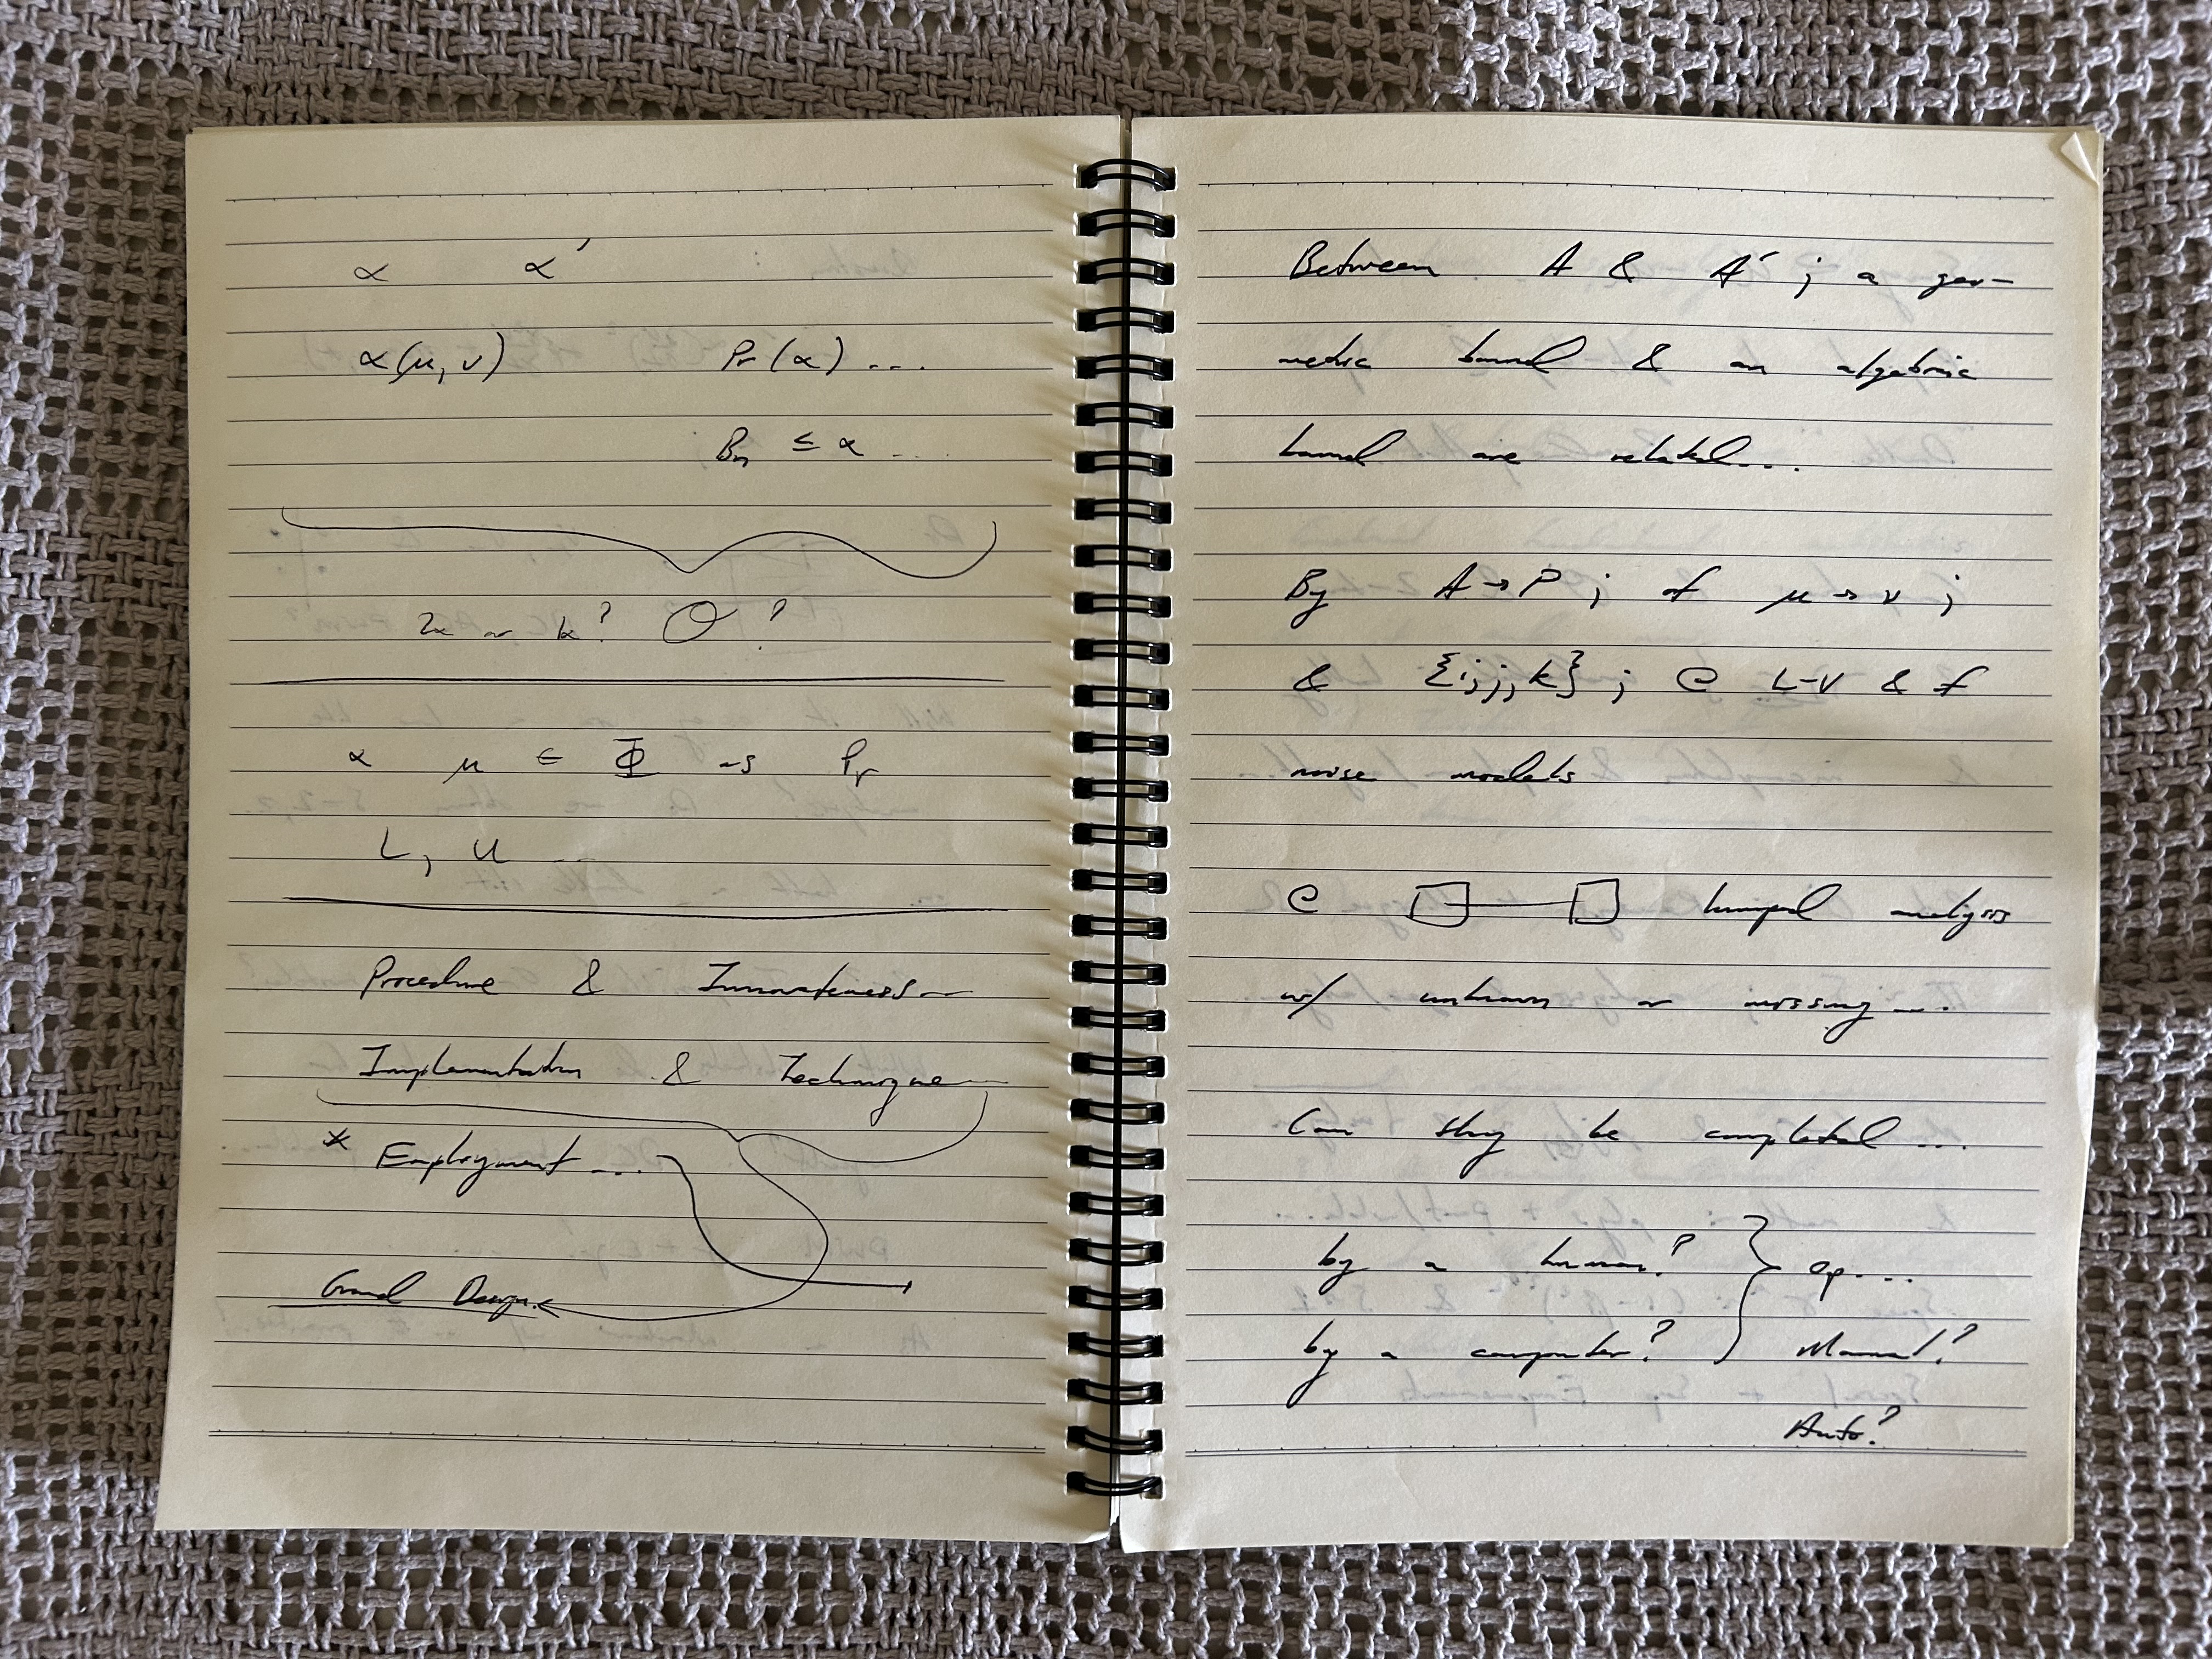 α α′
α(μ, ν) Pr(α) ...
Bn ≤ α ...
2x or k? O ?
α μ ∈ Φ as Pr
L, U ...
Procedure & Innovateness...
Implementation & Technique...
* Employment ...
Grand Design
Between A & A′ ; a geo-
metric bound & an algebraic
bound are related...
By A → P ; of μ → ν ;
& {i, j, k} ; @ L-V & f
noise models
@ analysis
w/ unknown or missing ...
Can they be completed ...
by a human? } Op...
by a computer? Manual?
Auto?